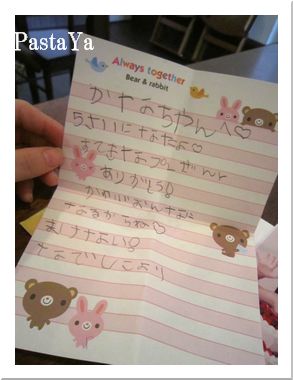 PastaYa
Always together
Bear & rabbit
かなちゃんへ♡
5さいになたよ♡
すてきなプレぜんと
ありがとう!
かわいいおんなに
なるからね♡
まけないっ!
なでしこより